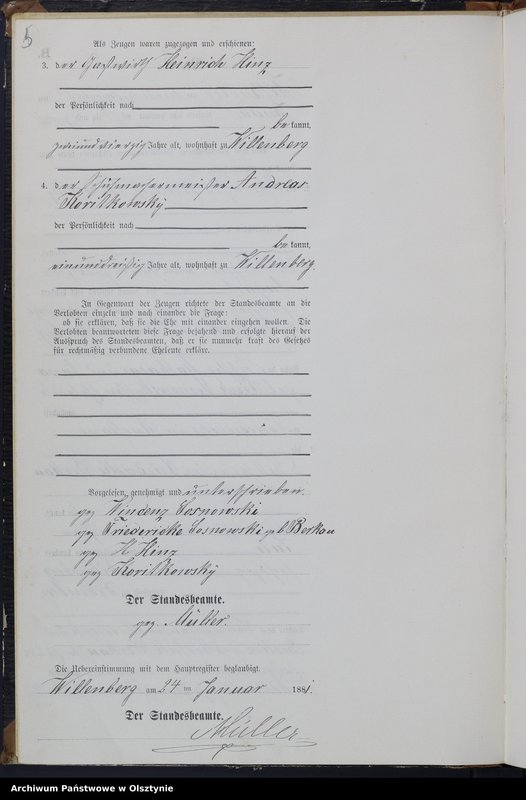 5
Als Zeugen waren zugezogen und erschienen:
3. der Gastwirth Heinrich Hinz
der Persönlichkeit nach
bekannt,
zweiundvierzig Jahre alt, wohnhaft zu Willenberg
4. der Schuhmachermeister Andreas
Koritkowsky
der Persönlichkeit nach
bekannt,
einunddreißig Jahre alt, wohnhaft zu Willenberg.
In Gegenwart der Zeugen richtete der Standesbeamte an die
Verlobten einzeln und nach einander die Frage:
ob sie erklären, daß sie die Ehe mit einander eingehen wollen. Die
Verlobten beantworteten diese Frage bejahend und erfolgte hierauf der
Ausspruch des Standesbeamten, daß er sie nunmehr kraft des Gesetzes
für rechtmäßig verbundene Eheleute erkläre.
Vorgelesen, genehmigt und unterschrieben.
gez Vincenz Sosnowski
gez Friedericke Sosnowski geb Berkau
gez H Hinz
gez Koritkowsky
Der Standesbeamte.
gez Müller.
Die Uebereinstimmung mit dem Hauptregister beglaubigt.
Willenberg am 24 ten Januar 1881.
Der Standesbeamte.
Müller
Archiwum Państwowe w Olsztynie